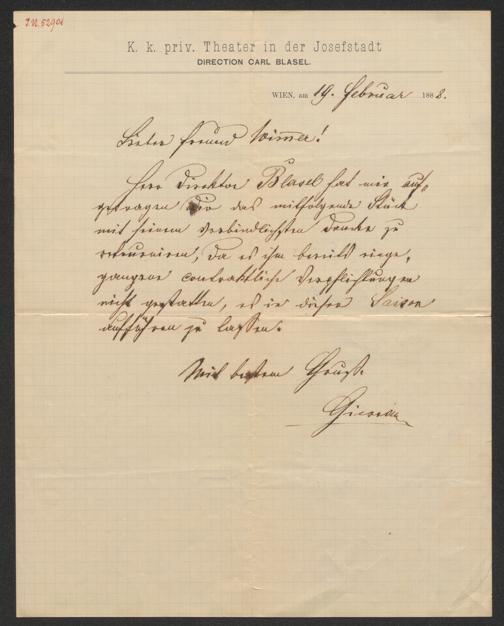 I.N. 52901
K. k. priv. Theater in der Josefstadt
DIRECTION CARL BLASEL.
WIEN, am 19. Februar 1888.
Lieber Freund Wimmer!
Herr Direktor Blasel hat mir auf-
getragen Dir das mitfolgende Stück
mit seinem verbindlichsten Danke zu
retourniren, da es ihm bereits einge-
gangene contraktliche Verpflichtungen
nicht gestatten, es in dieser Saison
aufführen zu lassen.
Mit bestem Gruß